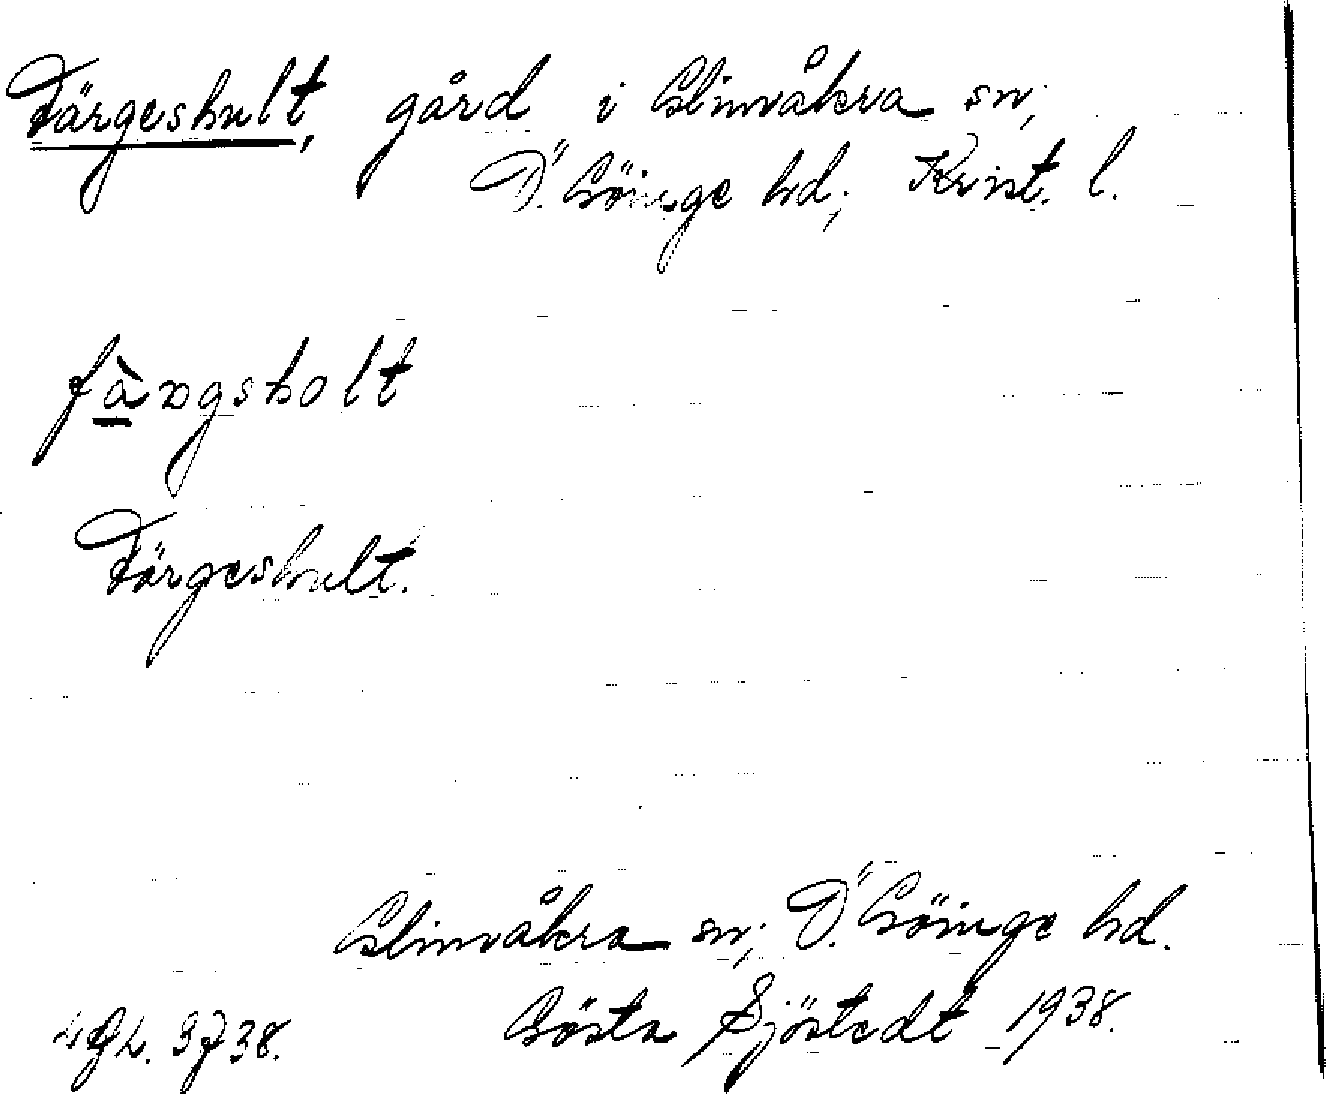 Färgeshult, gård i Glimåkra sn,
Ö. Göinge hd, Krist. l.
fàrgsholt
Färgeshult.
Glimåkra sn, Ö. Göinge hd.
Gösta Sjöstedt 1938.